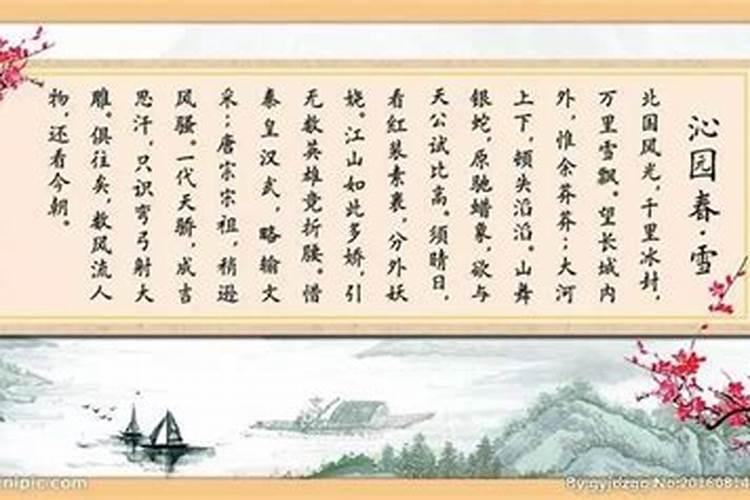 沁园春·雪
北国风光,千里冰封,
万里雪飘。望长城内
外,惟余莽莽;大河
上下,顿失滔滔。山舞
银蛇,原驰蜡象,欲与
天公试比高。须晴日,
看红装素裹,分外妖
娆。江山如此多娇,引
无数英雄竞折腰。惜
秦皇汉武,略输文
采;唐宗宋祖,稍逊
风骚。一代天骄,成吉
思汗,只识弯弓射大
雕。俱往矣,数风流人
物,还看今朝。
nipic.com
By:gyjdzgo No:20160814